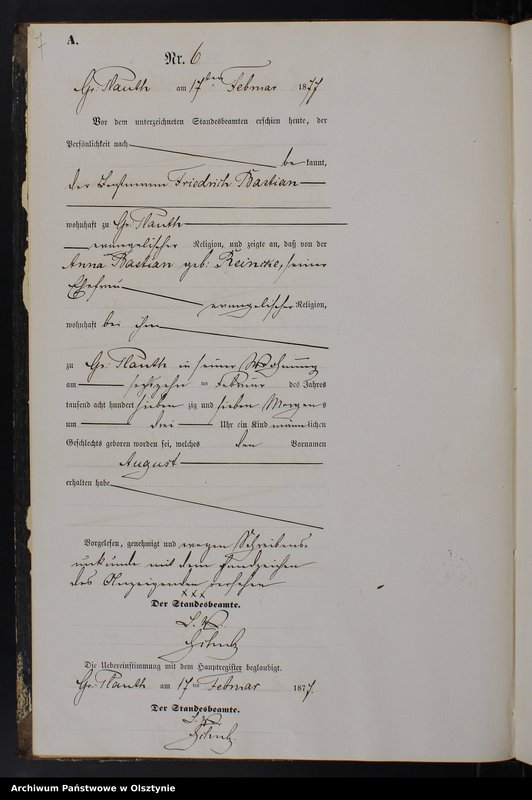 7
A.
Nr. 6
Gr. Nauth am 17ten Februar 1877
Vor dem unterzeichneten Standesbeamten erschien heute, der
Persönlichkeit nach
be kannt,
der Friedrich Bastian
wohnhaft zu Gr. Nauth
evangelischer Religion, und zeigte an, daß von der
Anna Bastian geb: Reincke, seiner
Ehefrau
evangelischer Religion,
wohnhaft bei ihm
zu Gr. Nauth in seiner Wohnung
am sechszehn ten Februar des Jahres
tausend acht hundert sieben zig und sieben Morgens
um drei Uhr ein Kind männlichen
Geschlechts geboren worden sei, welches den Vornamen
August
erhalten habe
Vorgelesen, genehmigt und wegen Schreibens-
unkunde mit dem Handzeichen
des Anzeigenden versehen
xxx
Der Standesbeamte.
Die Uebereinstimmung mit dem Hauptregister beglaubigt.
Gr. Nauth am 17 ten Februar 1877.
Der Standesbeamte.
Archiwum Państwowe w Olsztynie